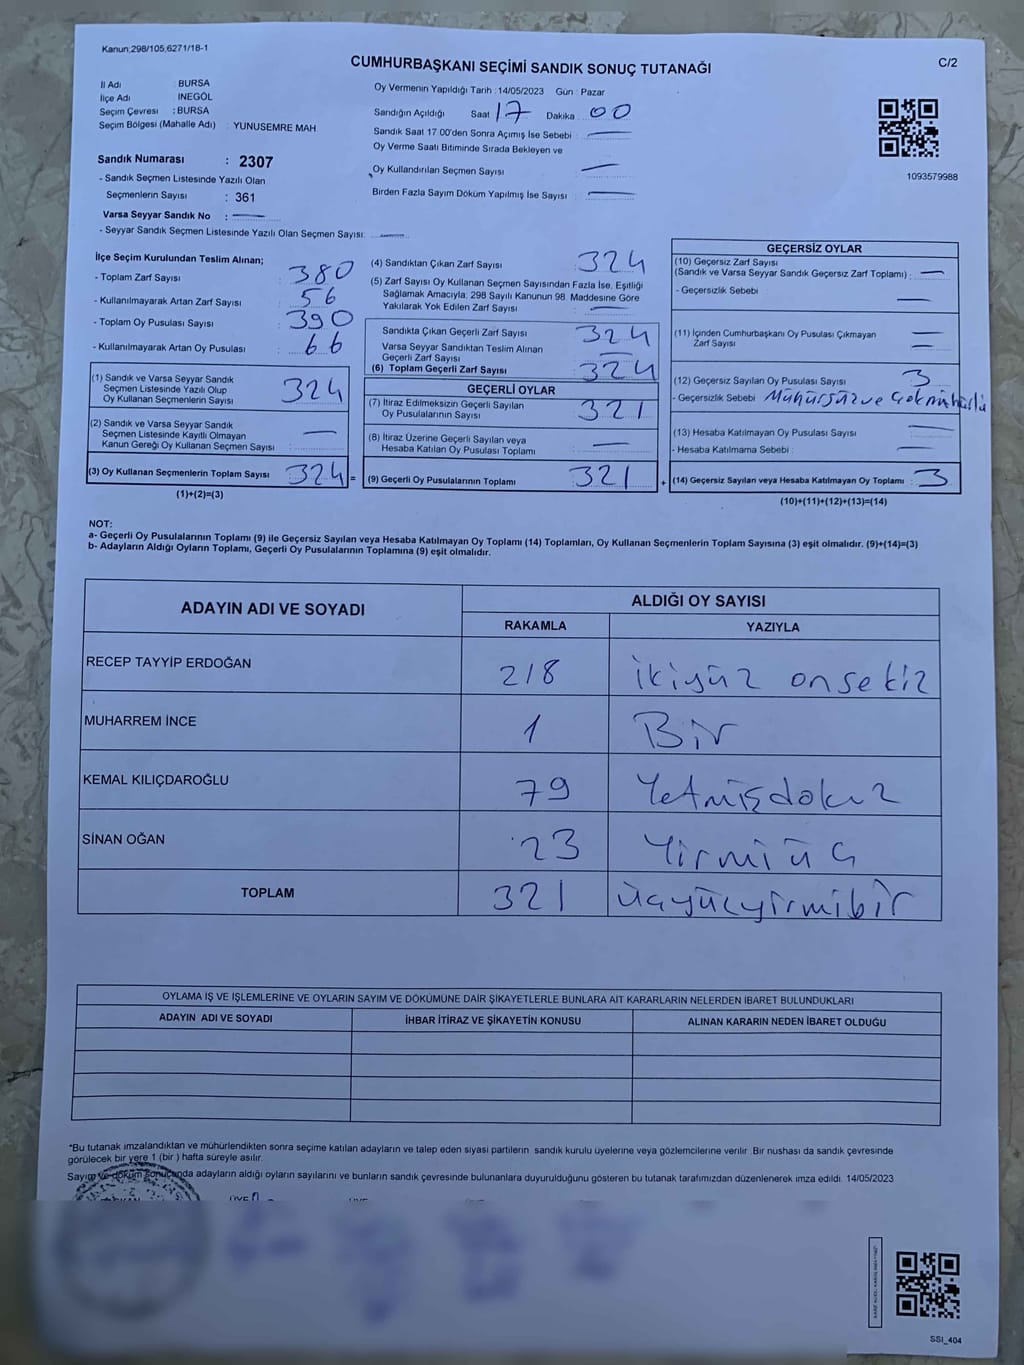 Kanun;298/105;6271/18-1
C/2
CUMHURBAŞKANI SEÇİMİ SANDIK SONUÇ TUTANAĞI
İl Adı : BURSA
İlçe Adı : İNEGÖL
Seçim Çevresi : BURSA
Seçim Bölgesi (Mahalle Adı) : YUNUSEMRE MAH
Oy Vermenin Yapıldığı Tarih :14/05/2023 Gün : Pazar
Sandığın Açıldığı Saat 17 Dakika 00
Sandık Saat 17:00'den Sonra Açımış İse Sebebi :
Oy Verme Saati Bitiminde Sırada Bekleyen ve
Oy Kullandırılan Seçmen Sayısı :
Birden Fazla Sayım Döküm Yapılmış İse Sayısı :
1093579988
Sandık Numarası : 2307
- Sandık Seçmen Listesinde Yazılı Olan
Seçmenlerin Sayısı : 361
Varsa Seyyar Sandık No :
- Seyyar Sandık Seçmen Listesinde Yazılı Olan Seçmen Sayısı:
İlçe Seçim Kurulundan Teslim Alınan;
- Toplam Zarf Sayısı : 380
- Kullanılmayarak Artan Zarf Sayısı : 56
- Toplam Oy Pusulası Sayısı : 390
- Kullanılmayarak Artan Oy Pusulası : 66
(1) Sandık ve Varsa Seyyar Sandık
Seçmen Listesinde Yazılı Olup
Oy Kullanan Seçmenlerin Sayısı : 324
(2) Sandık ve Varsa Seyyar Sandık
Seçmen Listesinde Kayıtlı Olmayan
Kanun Gereği Oy Kullanan Seçmen Sayısı :
(3) Oy Kullanan Seçmenlerin Toplam Sayısı : 324 =
(1)+(2)=(3)
(4) Sandıktan Çıkan Zarf Sayısı : 324
(5) Zarf Sayısı Oy Kullanan Seçmen Sayısından Fazla İse, Eşitliği
Sağlamak Amacıyla; 298 Sayılı Kanunun 98. Maddesine Göre
Yakılarak Yok Edilen Zarf Sayısı :
Sandıkta Çıkan Geçerli Zarf Sayısı : 324
Varsa Seyyar Sandıktan Teslim Alınan
Geçerli Zarf Sayısı :
(6) Toplam Geçerli Zarf Sayısı : 324
GEÇERLİ OYLAR
(7) İtiraz Edilmeksizin Geçerli Sayılan
Oy Pusulalarının Sayısı : 321
(8) İtiraz Üzerine Geçerli Sayılan veya
Hesaba Katılan Oy Pusulası Toplamı :
(9) Geçerli Oy Pusulalarının Toplamı : 321 +
GEÇERSİZ OYLAR
(10) Geçersiz Zarf Sayısı
(Sandık ve Varsa Seyyar Sandık Geçersiz Zarf Toplamı) :
- Geçersizlik Sebebi :
(11) İçinden Cumhurbaşkanı Oy Pusulası Çıkmayan
Zarf Sayısı :
(12) Geçersiz Sayılan Oy Pusulası Sayısı : 3
- Geçersizlik Sebebi : Mühürsüz ve Çok mühürlü
(13) Hesaba Katılmayan Oy Pusulası Sayısı :
- Hesaba Katılmama Sebebi :
(14) Geçersiz Sayılan veya Hesaba Katılmayan Oy Toplamı : 3
(10)+(11)+(12)+(13)=(14)
NOT:
a- Geçerli Oy Pusulalarının Toplamı (9) ile Geçersiz Sayılan veya Hesaba Katılmayan Oy Toplamı (14) Toplamları, Oy Kullanan Seçmenlerin Toplam Sayısına (3) eşit olmalıdır. (9)+(14)=(3)
b- Adayların Aldığı Oyların Toplamı, Geçerli Oy Pusulalarının Toplamına (9) eşit olmalıdır.
ADAYIN ADI VE SOYADI
ALDIĞI OY SAYISI
RAKAMLA YAZIYLA
RECEP TAYYİP ERDOĞAN 218 ikiyüz onsekiz
MUHARREM İNCE 1 Bir
KEMAL KILIÇDAROĞLU 79 Yetmişdokuz
SİNAN OĞAN 23 Yirmi üç
TOPLAM 321 üçyüzyirmibir
OYLAMA İŞ VE İŞLEMLERİNE VE OYLARIN SAYIM VE DÖKÜMÜNE DAİR ŞİKAYETLERLE BUNLARA AİT KARARLARIN NELERDEN İBARET BULUNDUKLARI
ADAYIN ADI VE SOYADI İHBAR İTİRAZ VE ŞİKAYETİN KONUSU ALINAN KARARIN NEDEN İBARET OLDUĞU
*Bu tutanak imzalandıktan ve mühürlendikten sonra seçime katılan adayların ve talep eden siyasi partilerin sandık kurulu üyelerine veya gözlemcilerine verilir. Bir nushası da sandık çevresinde
görülecek bir yere 1 (bir ) hafta süreyle asılır.
Sayım ve döküm sonucunda adayların aldığı oyların sayılarını ve bunların sandık çevresinde bulunanlara duyurulduğunu gösteren bu tutanak tarafımızdan düzenlenerek imza edildi. 14/05/2023
SSİ_404